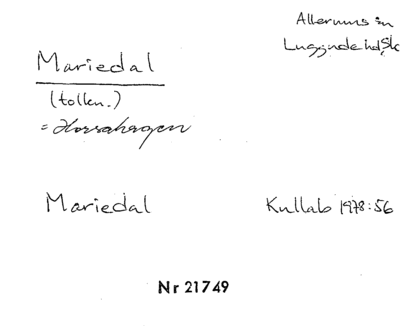 Allerums sn
Luggude hd, Sk
Mariedal
(tolkn.)
= Horsahagen
Mariedal
Kullab 1978:56
Nr 21749